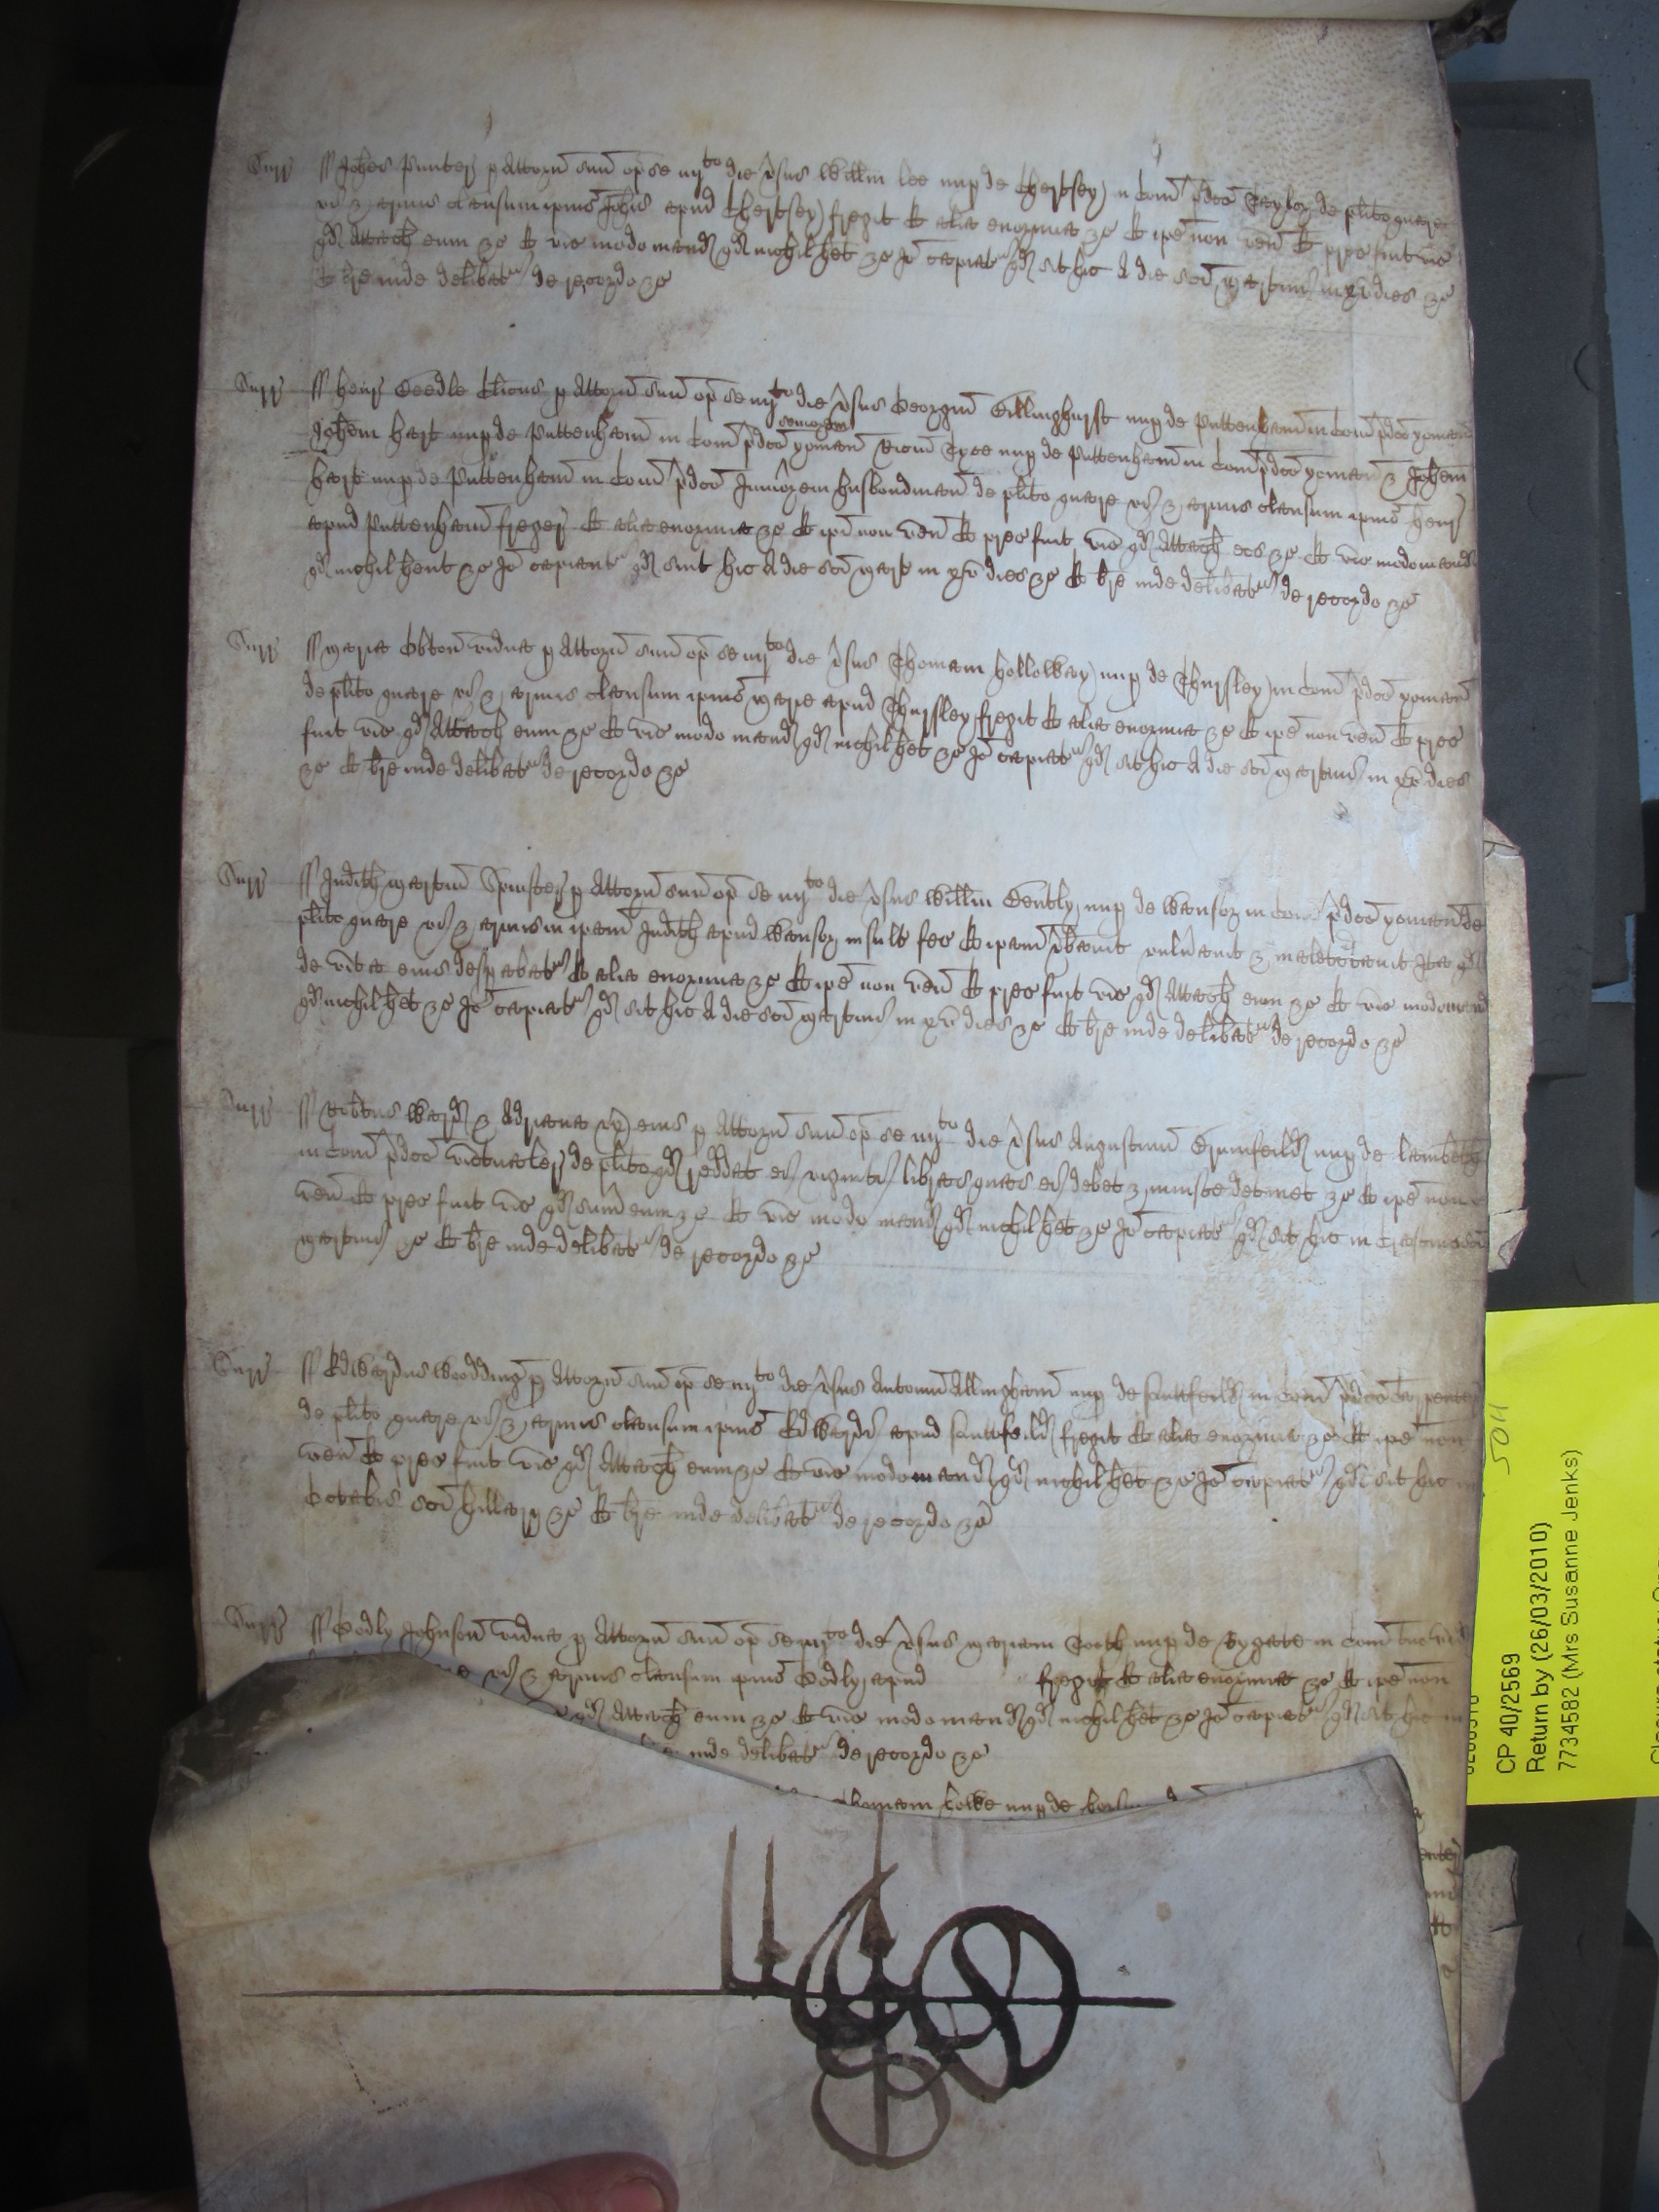 Surr Joħes Punter p Attorn suu op se iiijto die vsus Willm Lee nup de Chertsey in Com pdco Taylor de plito quare
vi & armis clausum ipius Joħis apud Chertsey fregit Et alia enormia &c Et ipe non ven Et prec fuit vic
qd Attach eum &c Et vic modo mand qd nichil het &c Jo capiatr qd sit hic A die sci Martini in xv dies &c
Et bre inde delibatr de recordo &c
Surr Henr Beedle Clicus p Attorn suu op se iiijto die vsus Georgiu Billinghurst nup de Puttenham in Com pdco yoman
seniorem
Joħem Hart nup de Puttenham in Com pdco yoman Ricm Tree nup de Puttenham in Com pdco yoman & Joħem
Hart nup de Puttenham in Com pdco Juniorem husbondman de plito quare vi & armis clausum ipius Henr
apud Puttenham freger Et alia enormia &c Et ipi non ven Et prec fuit vic qd Attach eos &c Et vic modo mand
qd nichil hent &c Jo capiantr qd sint hic A die sci Mart in xv dies &c Et bre inde delibatr de recordo &c
Surr Maria Obton vidua p Attorn suu op se iiijto die vsus Thomam Holloway nup de Thursley in Com pdco yoman
de plito quare vi & armis clausum ipius Marie apud Thursley fregit Et alia enormia &c Et ipe non ven Et prec
fuit vic qd Attach eum &c Et vic modo mand qd nichil het &c Jo capiatr qd sit hic A die sci Martini in xv dies
&c Et bre inde delibatr de recordo &c
Surr Judith Martin Spinster p Attorn suu op se iiijto die vsus Willm Bently nup de Wansor in Com pdco yoman de
plito quare vi & armis in ipam Judith apud Wansor insult fec Et ipam vbavit vulnavit & maletractavit Ita qd
de vita eius despabatr Et alia enormia &c Et ipe non ven Et prec fuit vic qd Attach eum &c Et vic modo mand
qd nichil het &c Jo capiatr qd sit hic A die sci Martini in xv dies &c Et bre inde delibatr de recordo &c
Surr Robtus Ward & Adriana ux eius p Attorn suu op se iiijto die vsus Augustinu Grunfeild nup de Lambeth
in Com pdco victualer de plito qd reddat eis viginti libras quas eis debet & iniuste detinet &c Et ipe non
ven Et prec fuit vic qd sum eum &c Et vic modo mand qd nichil het &c Jo capiatr qd sit hic in Crastino sci
Martini &c Et bre inde delibatr de recordo &c
Surr Edwardus Woodding p Attorn suu op se iiijto die vsus Antoniu Allingham nup de Lauttfeild in Com pdco Carpenter
de plito quare vi & armis clausum ipius Edwardi apud Lauttfeild fregit Et alia enormia &c Et ipe non
ven Et prec fuit vic qd Attach eum &c Et vic modo mand qd nichil het &c Jo capiatr qd sit hic in
Octabis sci Hillary &c Et bre inde delibatr de recordo &c
Surr Godly Johnson vidua p Attorn suu op se iiijto die vsus Mariam Tooth nup de Rygate in Com
vi & armis clausum ipius Godly apud fregit Et alia enormia &c Et ipe non
qd Attach eum &c Et vic modo mand qd nichil het &c Jo capiatr qd sit hic in
inde delibatr de recordo &c
Lowe nup de
5011
CP 40/2569
Return by (26/03/2010)
7734582 (Mrs Susanne Jenks)